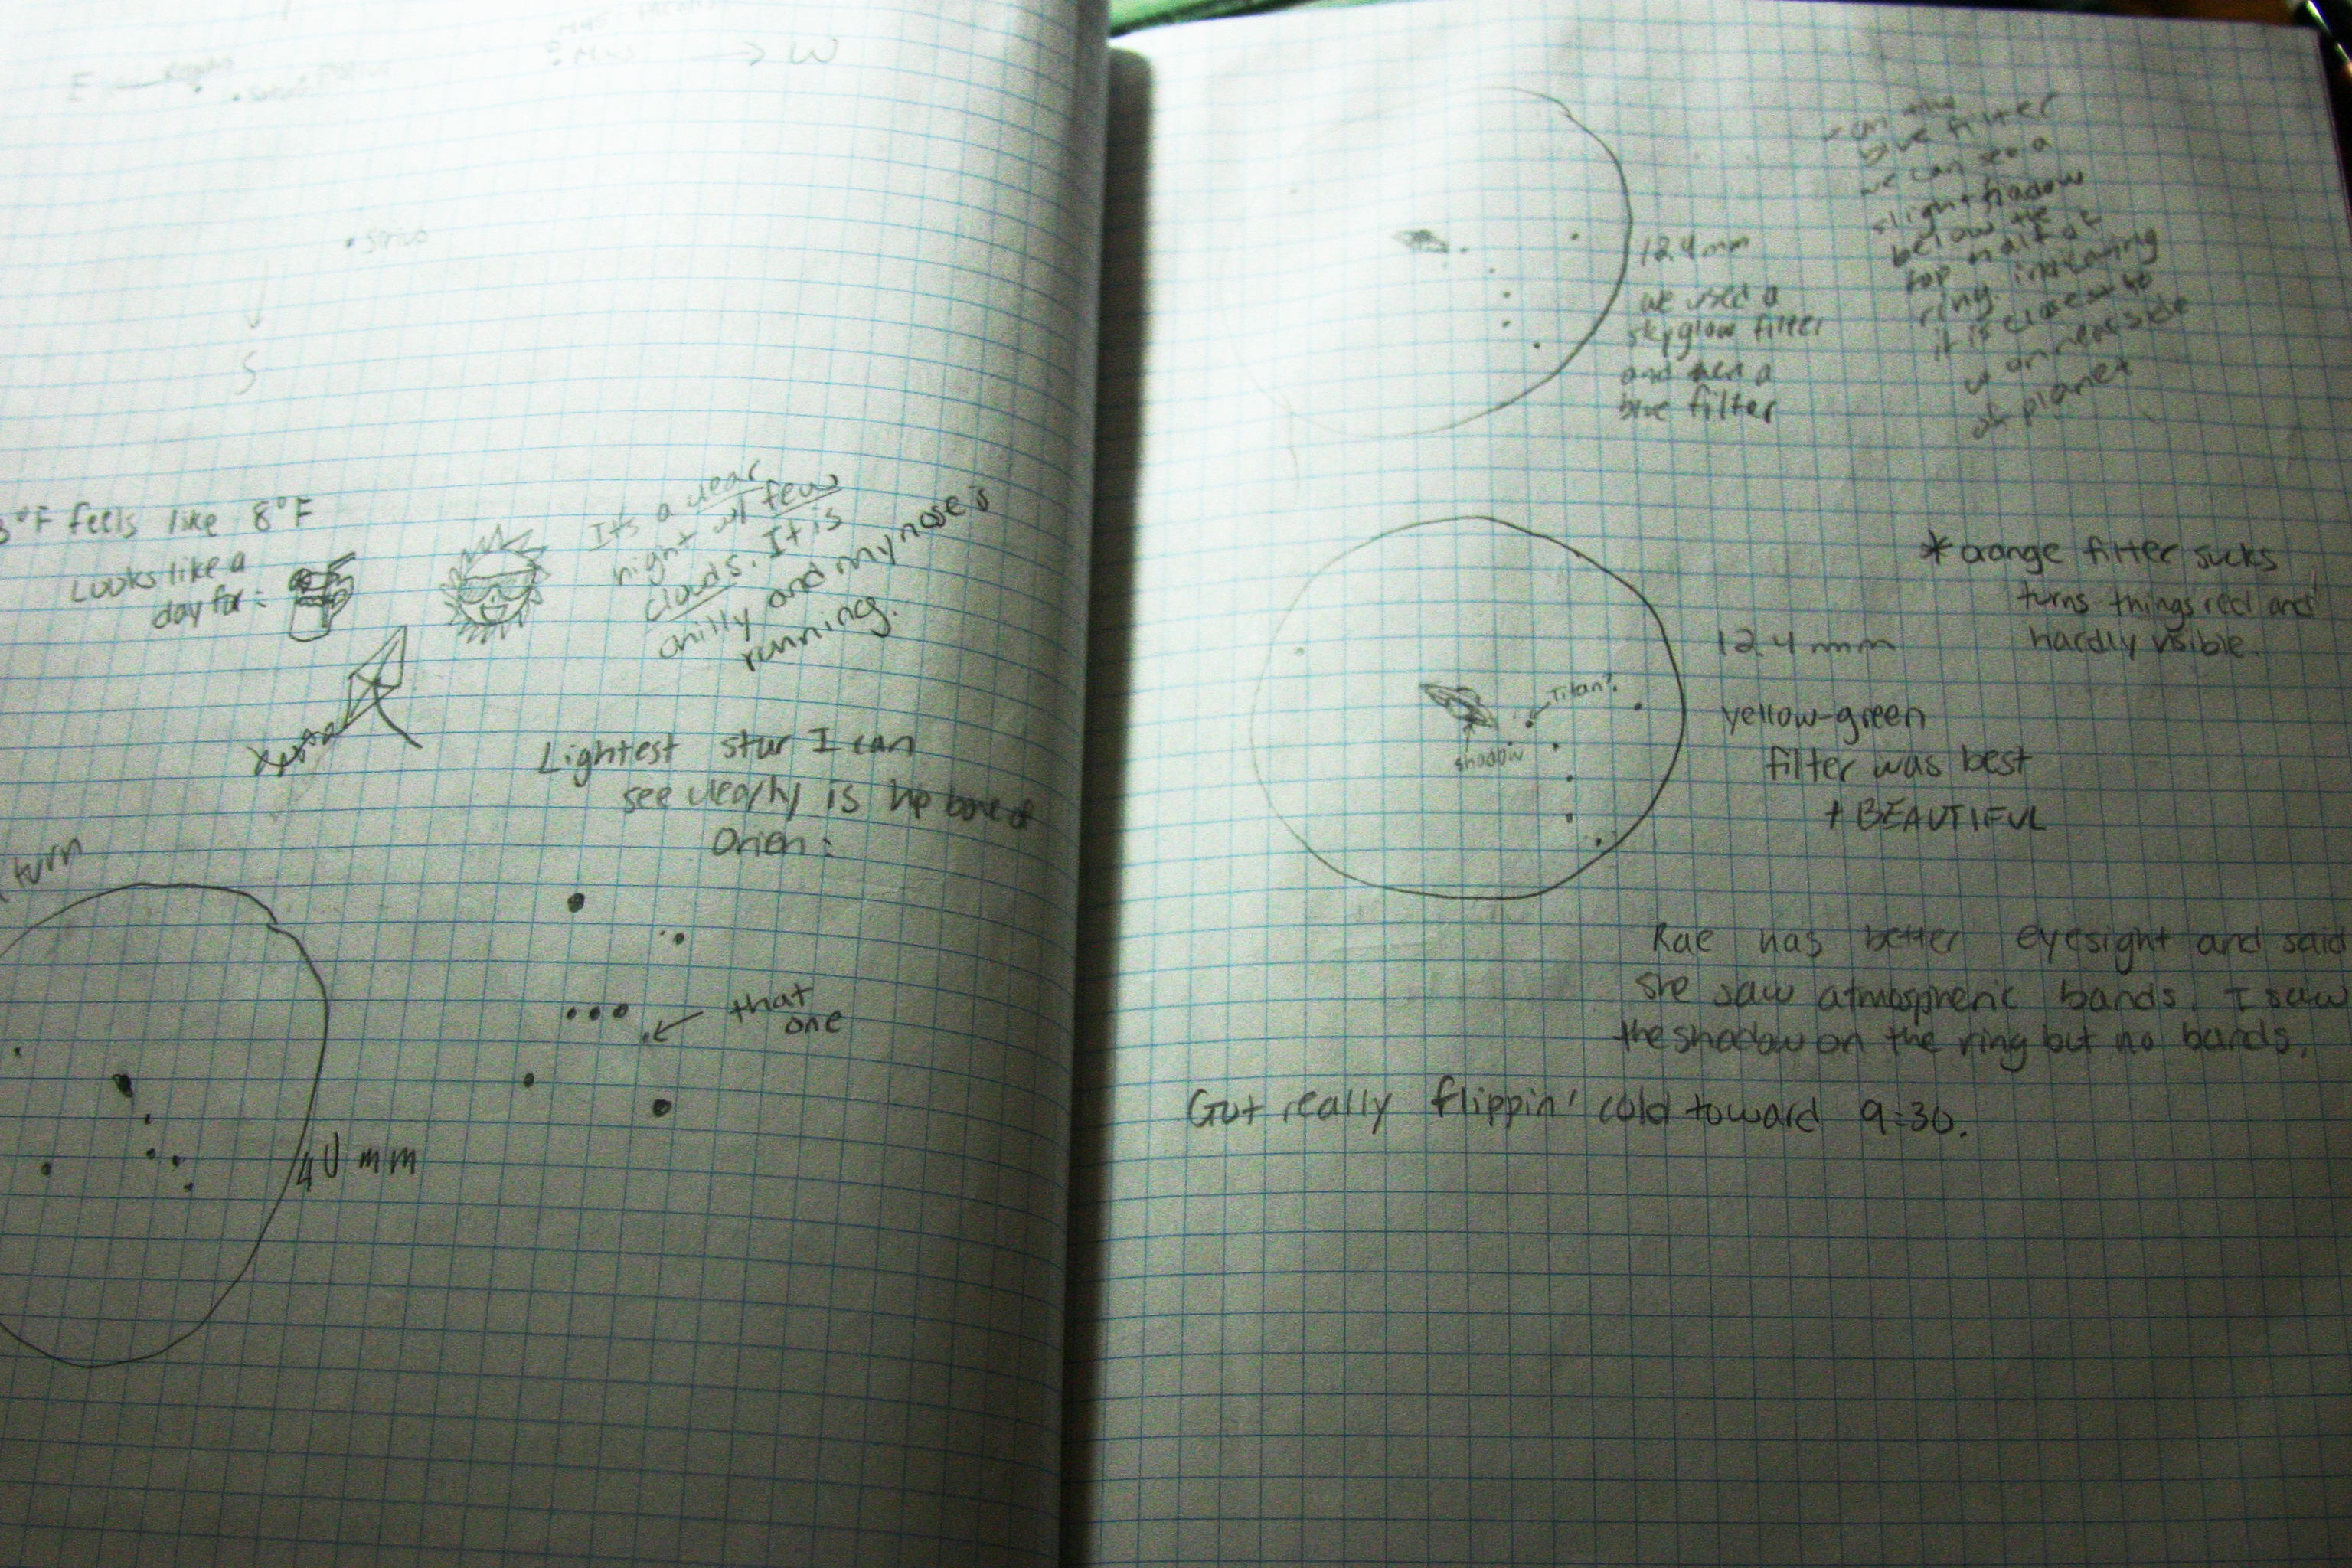 E
W
Mars
Sirius
S
°F feels like 8°F
Looks like a
day for:
It's a clear
night w/ few
clouds. It is
chilly and my nose is
running.
Lightest star I can
see clearly is hip bone of
Orien:
that
one
turn
40 mm
12.4mm
we used a
skyglow filter
and then a
blue filter
blue filter
we can see a
slight shadow
below the
top half of
ring
it is closest to
us on near side
of planet
* orange filter sucks
turns things red and
hardly visible.
Titan?
shadow
12.4 mm
yellow-green
filter was best
+ BEAUTIFUL
Rae has better eyesight and said
she saw atmospheric bands. I saw
the shadow on the ring but no bands.
Got really flippin' cold toward 9:30.